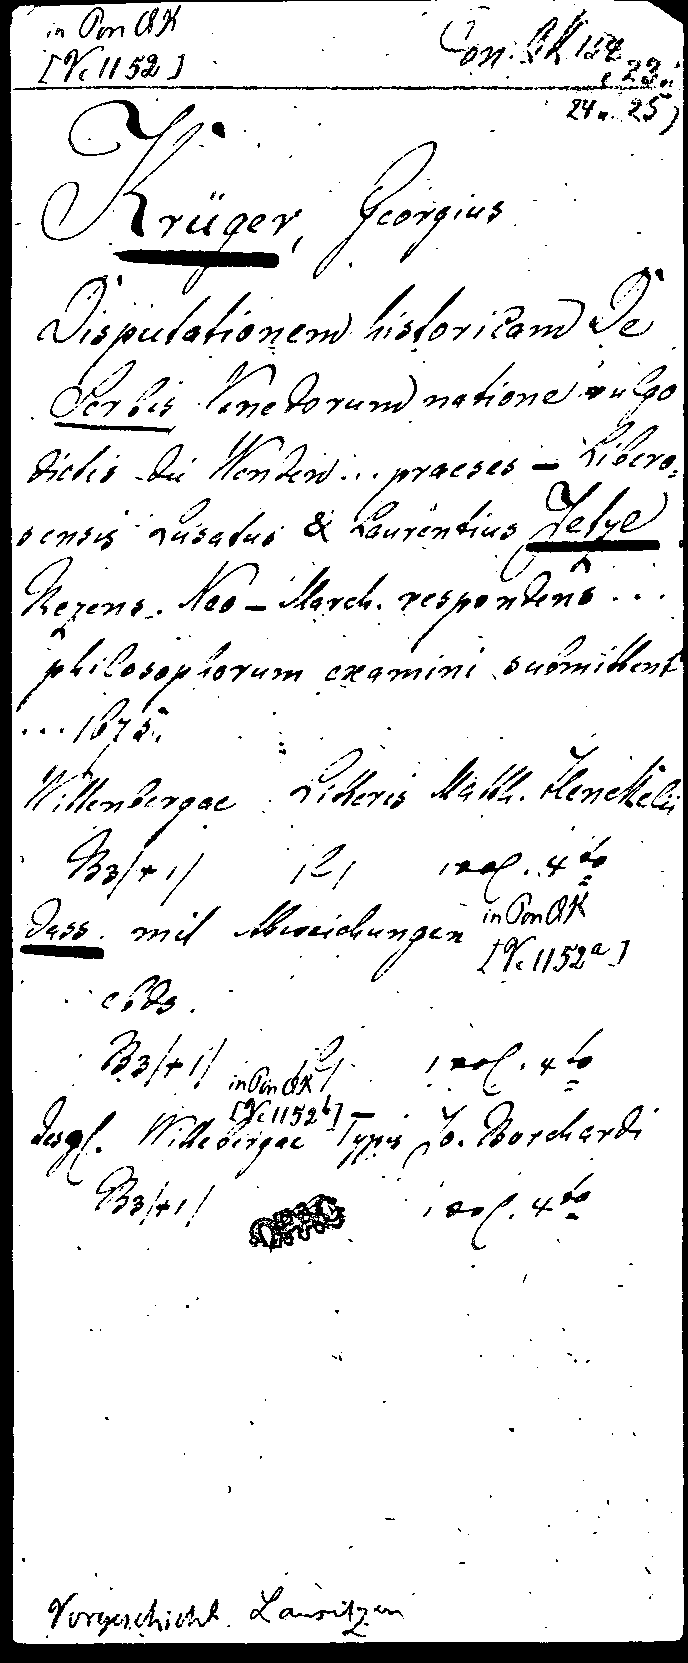 in Pon QK
[Vc 1152]
Pon. QK 152
, 23 ;
24 u. 25)
Krüger, Georgius
Disputationem historicam De
Serbis Venedorum natione vulgo
dictis die Wenden ... praeses – Libero-
sensis Lusatus & Laurentius Jetze
Rezens. Neo-March. respondens ...
philosophorum examini submittent
... 1675.
Wittenbergae Litteris Matth. Henckelii
B3/+1/ 1 vol. 4to
Dass. mit Abweichungen in Pon QK
[Vc 1152a]
ebds.
B3/+1/ 1 vol. 4to
in Pon QK
[Vc 1152b]
Desgl. Wittebergae Typis Jo. Borchardi
B3/+1/ 1 vol. 4to
Vorgeschicht. Lausitzen